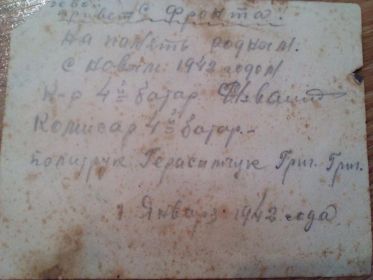 привет с фронта!
На память родным.
С новым 1942 годом
К-р 4й батар
Комисар 4й батар-
политрук Герасимчук Григ. Григ.
1 Января 1942 года